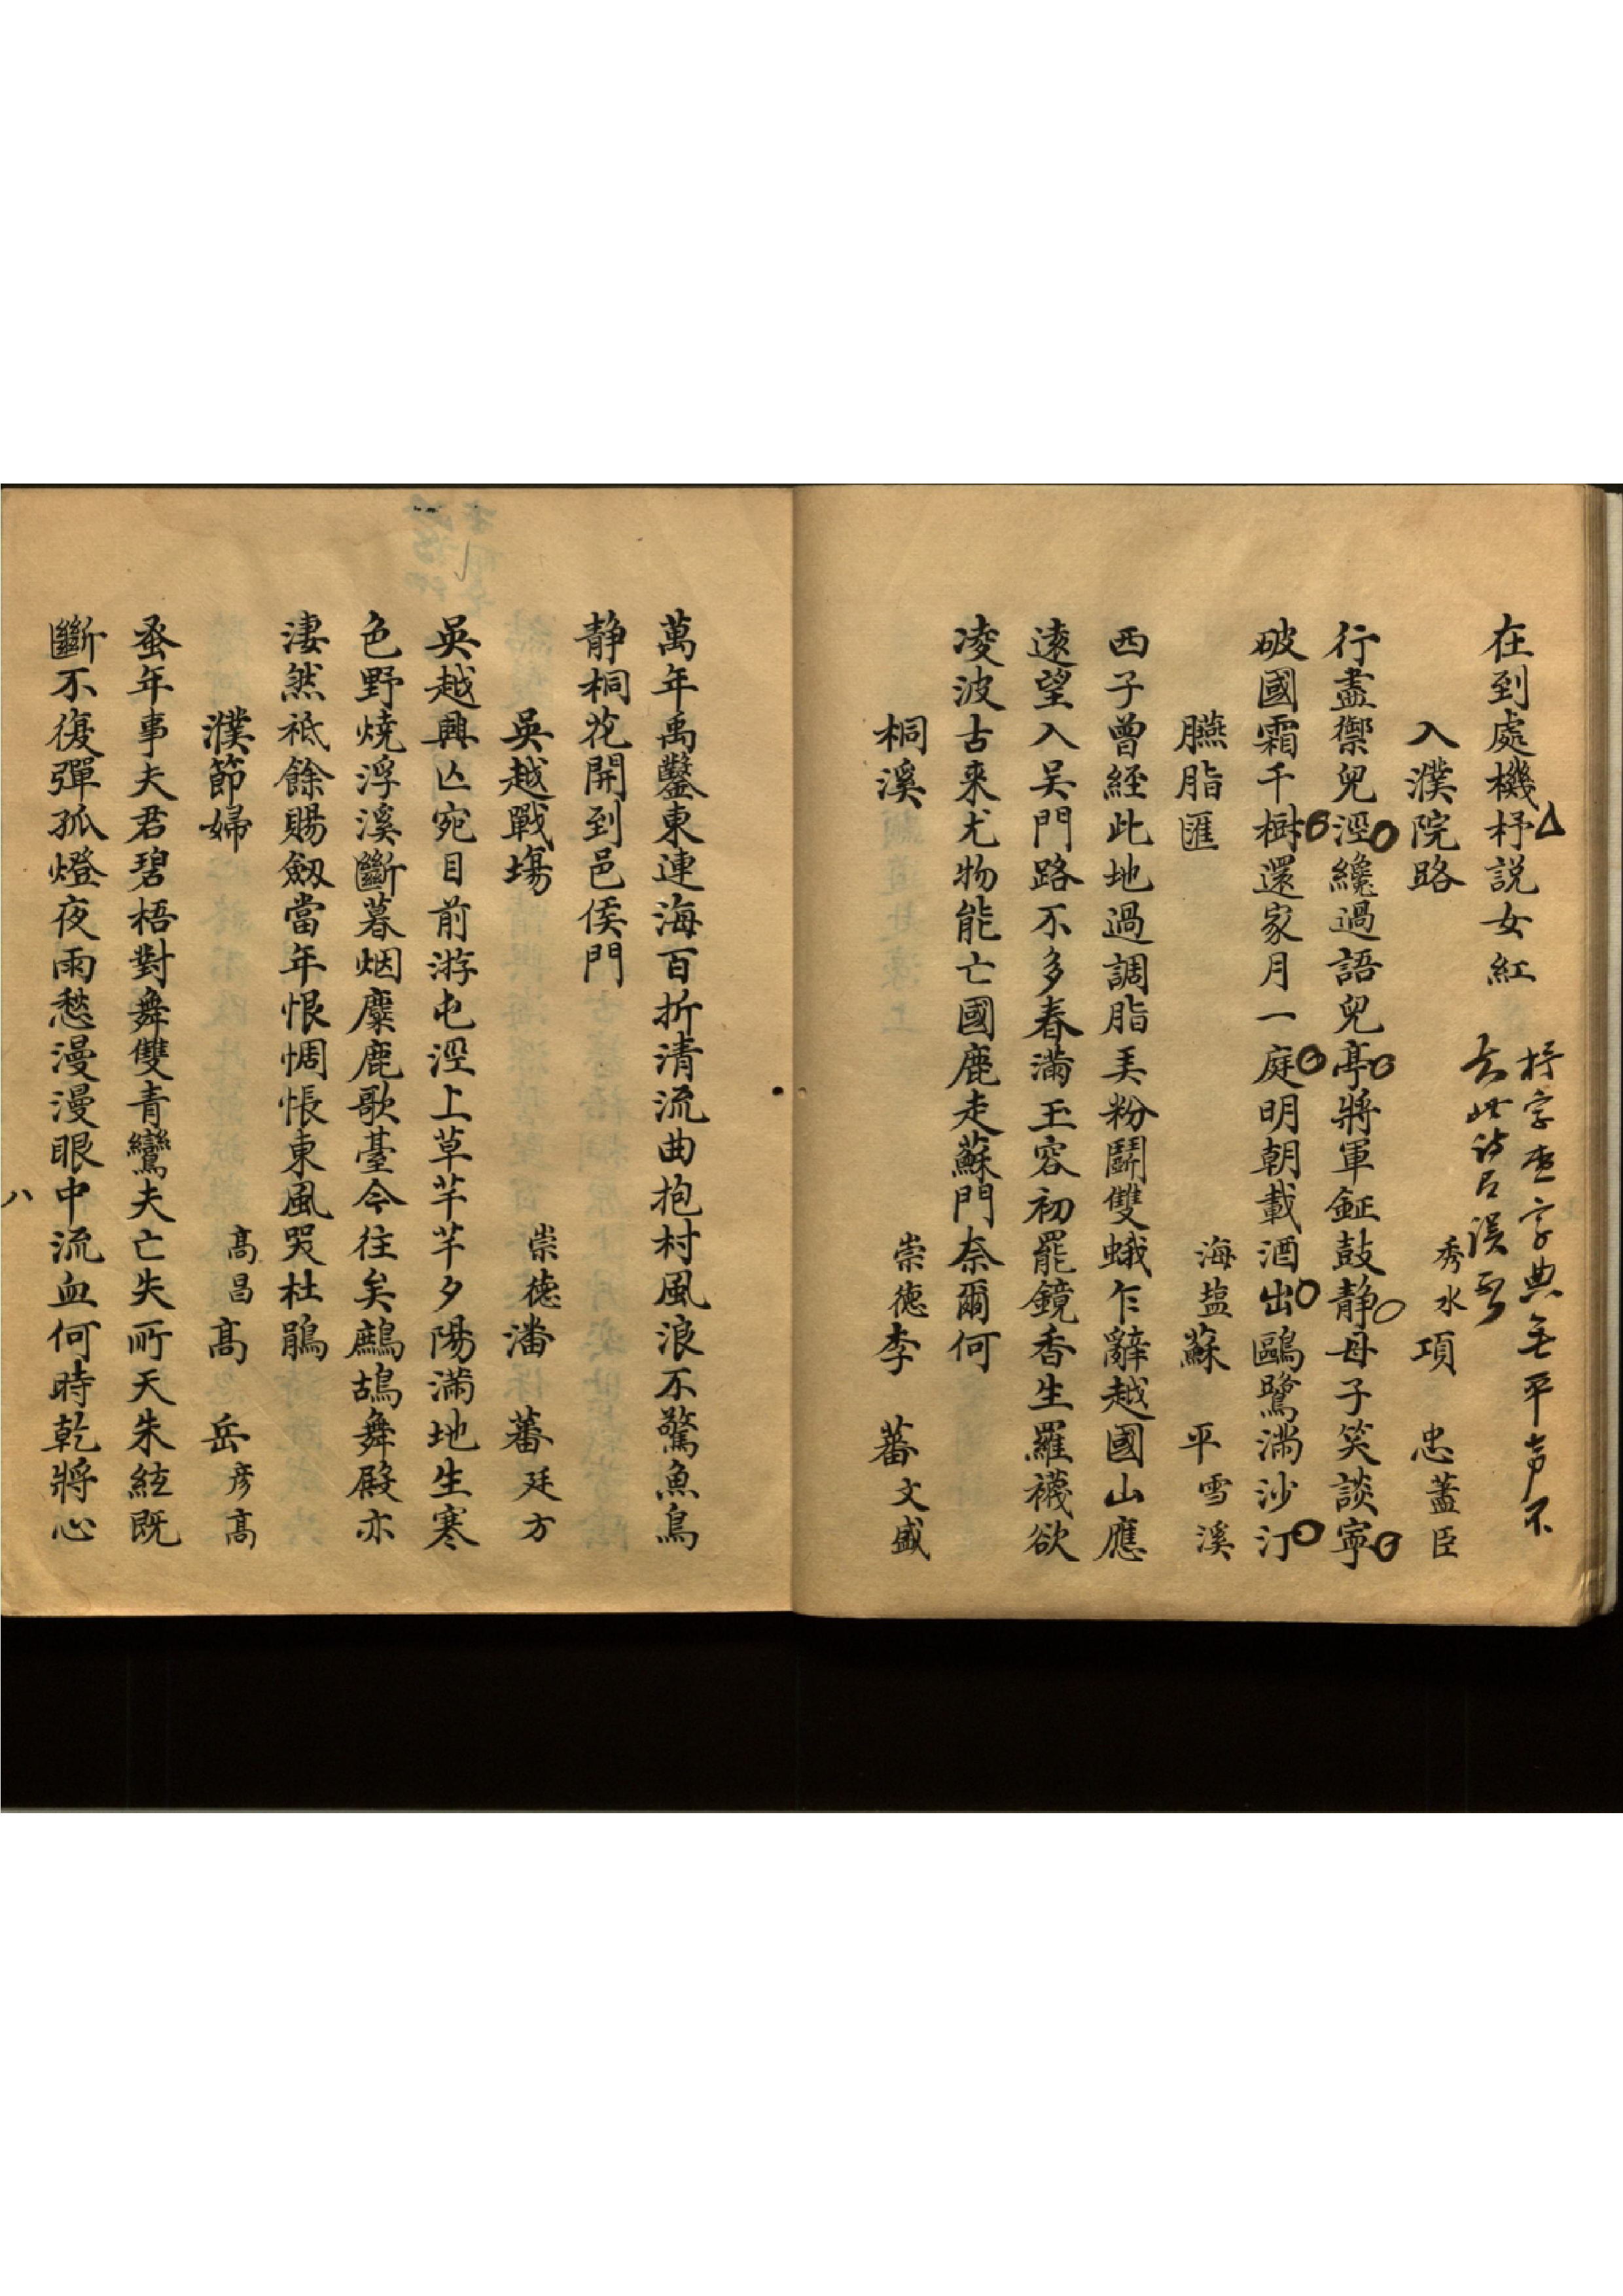 在到處機杼説女紅
杼字查字典無平声不
入濮院路　秀水項　忠藎臣
行盡禦兒涇纔過語兒亭將軍鉦鼓静母子笑談寧
破國霜千樹還家月一庭明朝載酒出鷗鷺滿沙汀
臙脂匯　海塩蘇　平雪溪
西子曾經此地過調脂美粉鬬雙蛾乍辭越國山應
遠望入吴門路不多春滿玉容初罷鏡香生羅襪欲
凌波古来尤物能亡國鹿走蘇門奈爾何
桐溪　崇德李　蕃文盛
萬年禹鑿東連海百折清流曲抱村風浪不驚魚鳥
静桐花開到邑侯門
吳越戰塲　崇德潘　蕃廷方
吳越興亾宛目前游屯涇上草芊芊夕陽滿地生寒
色野燒浮溪斷暮烟麋鹿歌臺今往矣鷓鴣舞殿亦
淒然祗餘賜劔當年恨惆悵東風哭杜鵑
濮節婦　髙昌髙　岳彦髙
蚤年事夫君碧梧對舞雙青鸞夫亡失所天朱絃既
斷不復彈孤燈夜雨愁漫漫眼中流血何時乾將心
八